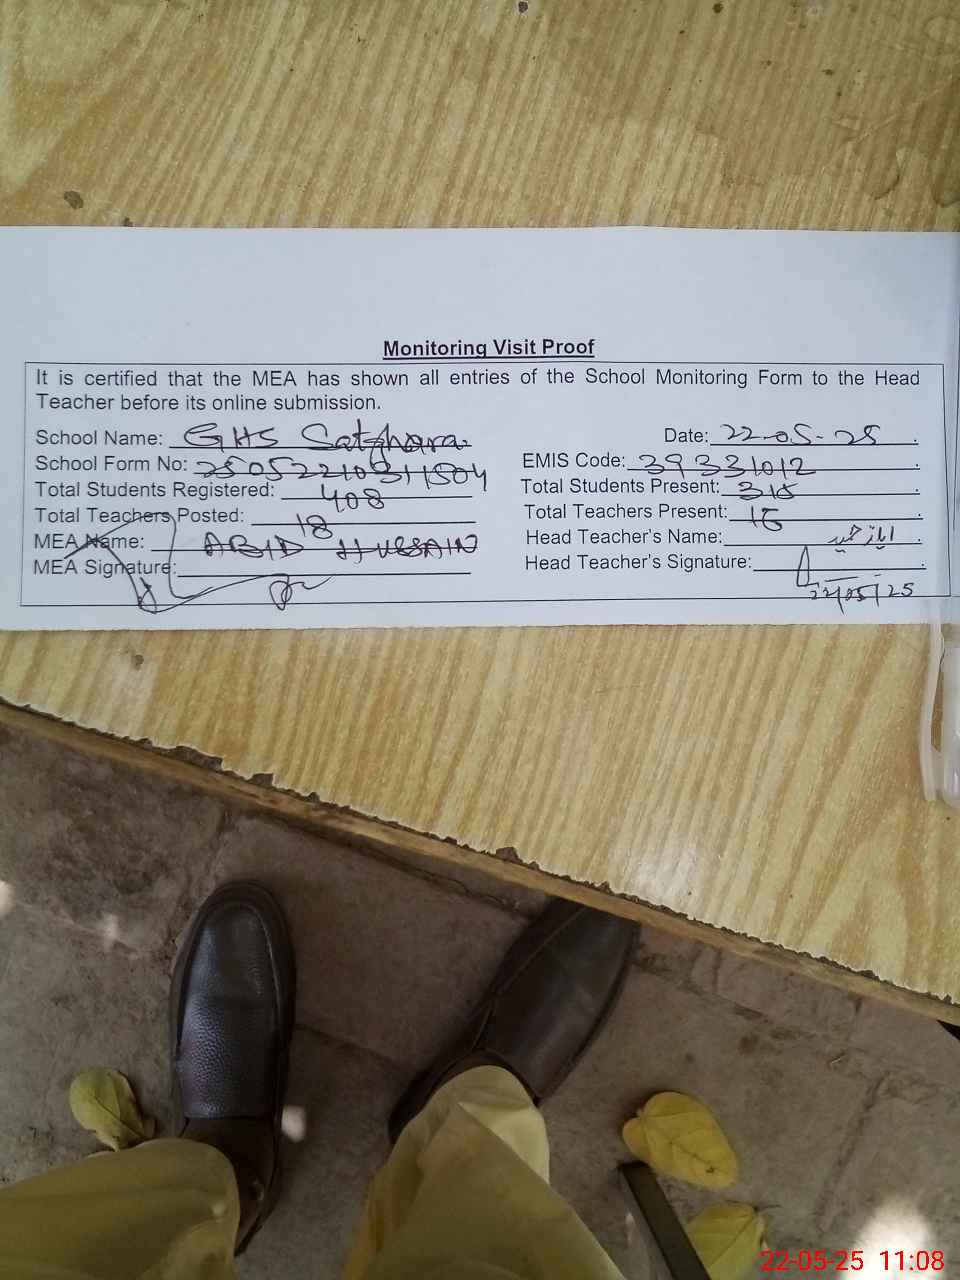 Monitoring Visit Proof
It is certified that the MEA has shown all entries of the School Monitoring Form to the Head
Teacher before its online submission.
School Name: GHS Satghara. Date: 22-05-25.
School Form No: EMIS Code: 39331012.
Total Students Registered: 408 Total Students Present: 315.
Total Teachers Posted: 18 Total Teachers Present: .
MEA Name: ABID HUSSAIN Head Teacher's Name: .
MEA Signature: Head Teacher's Signature: .
22/05/25
22-05-25 11:08